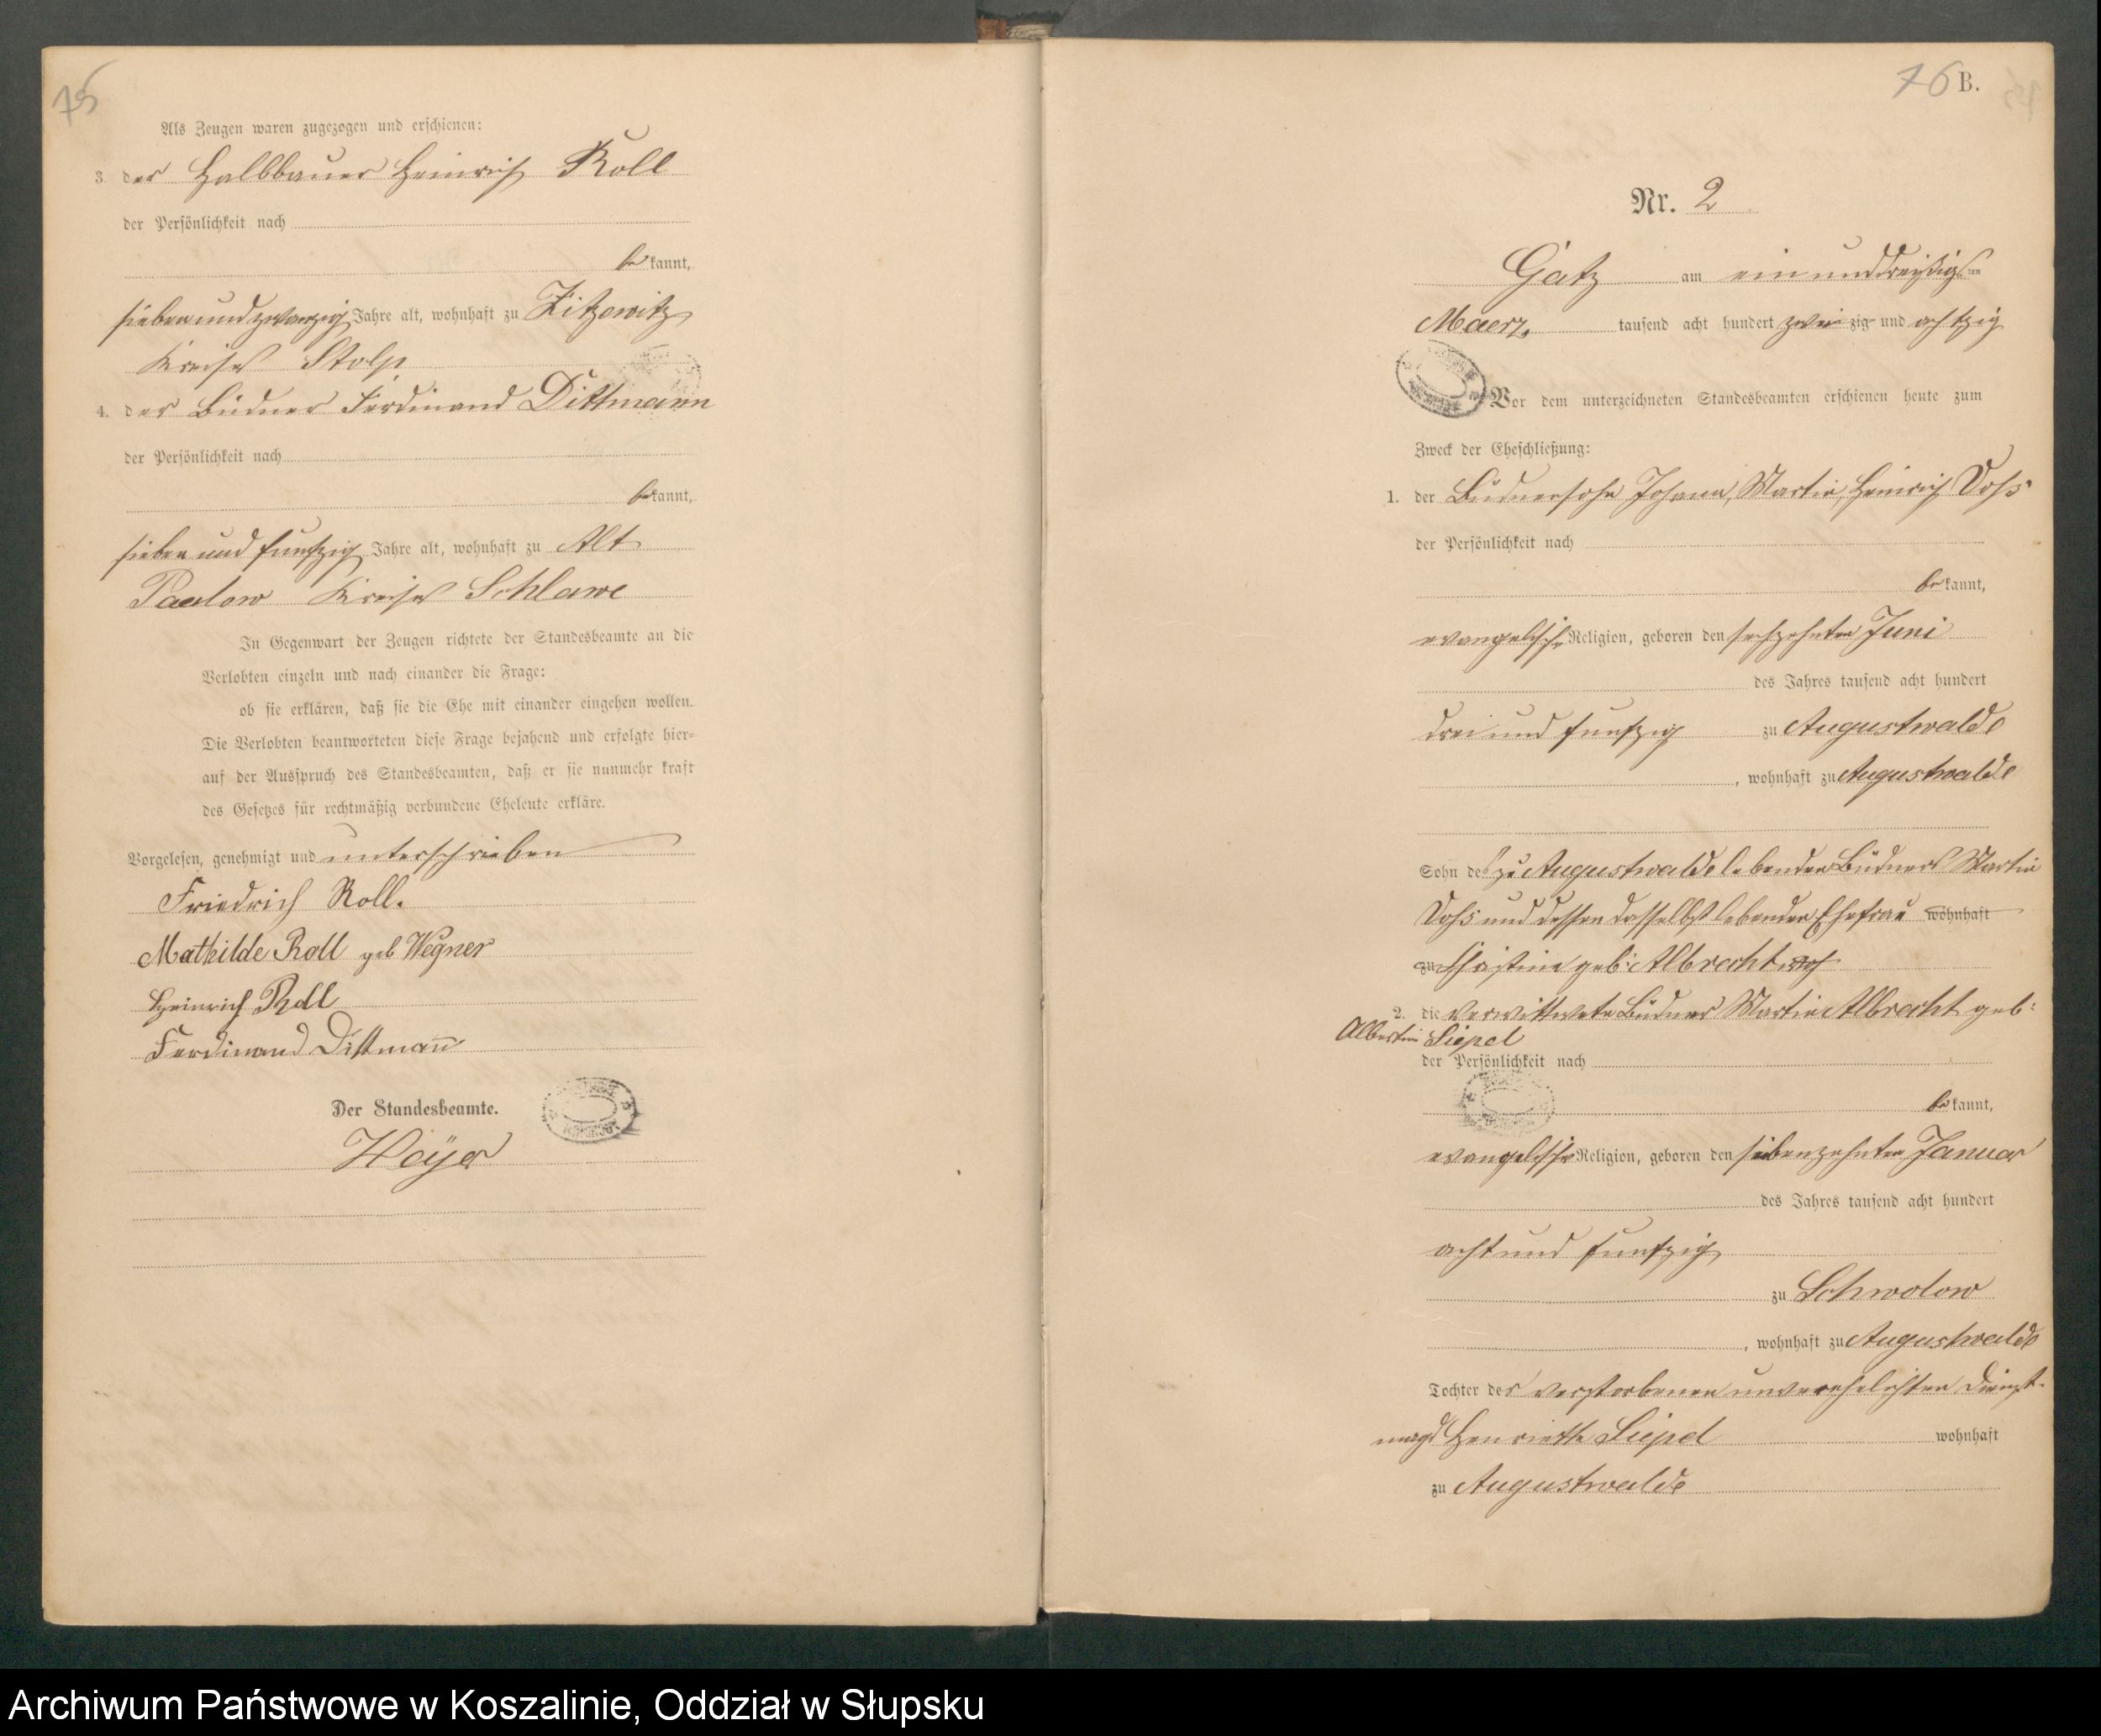 75
Als Zeugen waren zugezogen und erschienen:
3. der Halbbauer Heinrich Roll
der Persönlichkeit nach
bekannt,
sieben und zwanzig Jahre alt, wohnhaft zu Zitzewitz
Kreises Stolp
4. der Büdner Ferdinand Dittmann
der Persönlichkeit nach
bekannt,
sieben und funfzig Jahre alt, wohnhaft zu Alt
Paalow Kreises Schlawe
In Gegenwart der Zeugen richtete der Standesbeamte an die
Verlobten einzeln und nach einander die Frage:
ob sie erklären, daß sie die Ehe mit einander eingehen wollen.
Die Verlobten beantworteten diese Frage bejahend und erfolgte hier-
auf der Ausspruch des Standesbeamten, daß er sie nunmehr kraft
des Gesetzes für rechtmäßig verbundene Eheleute erkläre.
Vorgelesen, genehmigt und unterschrieben
Friedrich Roll.
Mathilde Roll geb Wegner
Heinrich Roll
Ferdinand Dittmann
Der Standesbeamte.
76 B.
Nr. 2
Gatz am ein und dreißigsten
Maerz tausend acht hundert zwei zig und achtzig
Vor dem unterzeichneten Standesbeamten erschienen heute zum
Zweck der Eheschließung:
1. der Büdnersohn Johann, Martin, Heinrich Voß
der Persönlichkeit nach
bekannt,
evangelischer Religion, geboren den sechszehnten Juni
des Jahres tausend acht hundert
drei und funfzig zu Augustwalde
, wohnhaft zu Augustwalde
Sohn des zu Augustwalde lebenden Büdners Martin
Voß und dessen daselbst lebenden Ehefrau wohnhaft
zu Christine geb: Albrecht
2. die verwittwete Büdner Martin Albrecht geb:
Albertine Siepel
der Persönlichkeit nach
bekannt,
evangelischer Religion, geboren den siebenzehnten Januar
des Jahres tausend acht hundert
acht und funfzig
zu Schwolow
, wohnhaft zu Augustwalde
Tochter der verstorbenen unverehelichten Dienst-
magd Henriette Siepel wohnhaft
zu Augustwalde
Archiwum Państwowe w Koszalinie, Oddział w Słupsku